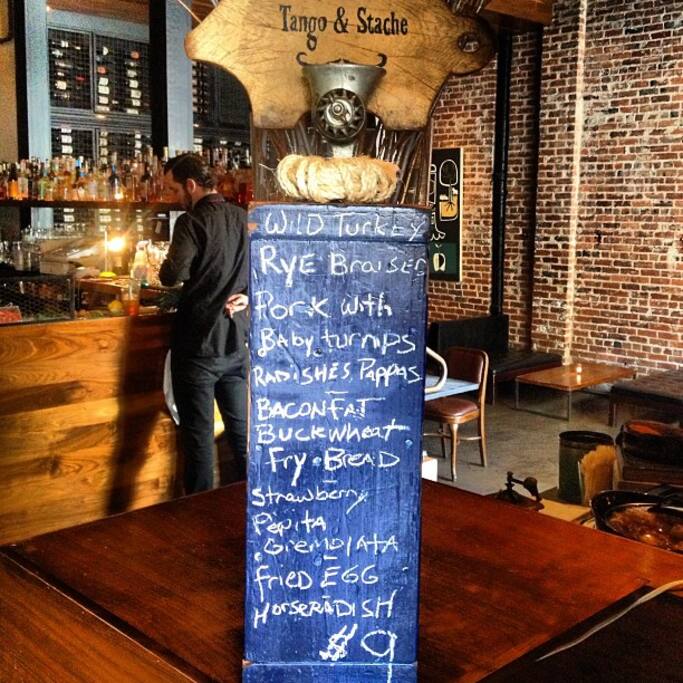 Tango & Stache
WILD Turkey
RYE BrAISED
Pork with
BABy turnips
RADISHES, PAppAS
BACON FAT
Buckwheat
Fry BreAD
Strawberry
Pepita
GremolATA
frieD EGG
HorserADISH
$9